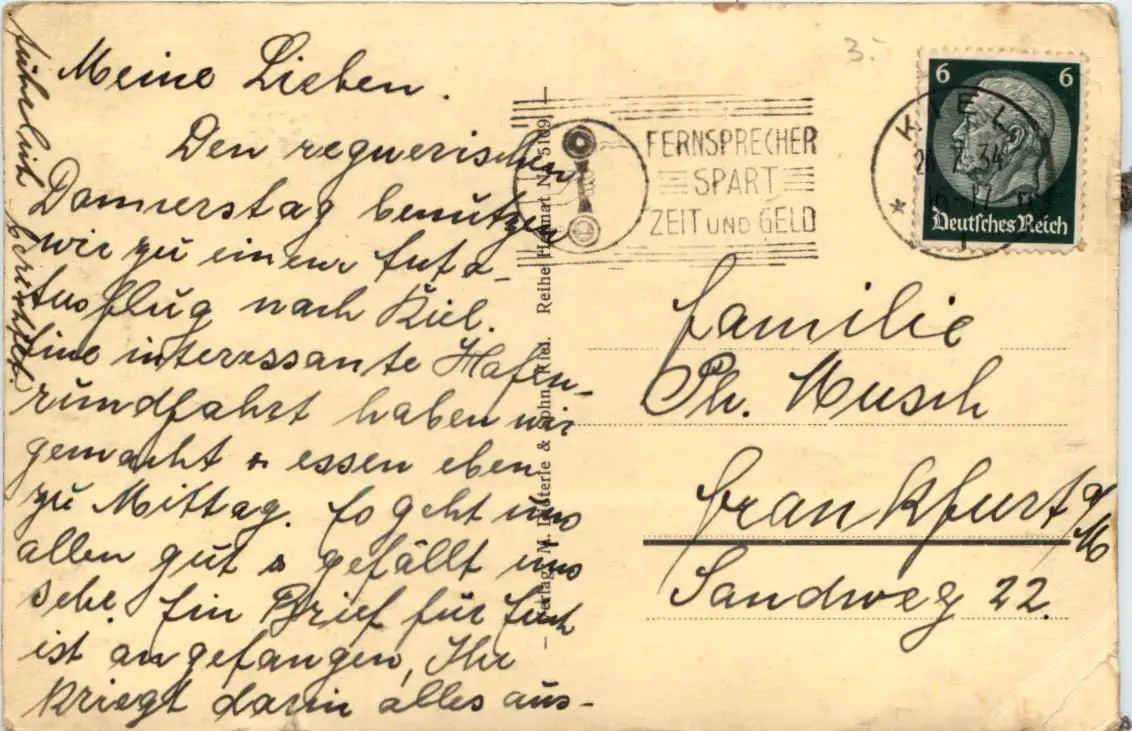 Meine Lieben.
Den regnerischen
Donnerstag benutzen
wir zu einem Auto-
Ausflug nach Kiel.
Eine interessante Hafen-
rundfahrt haben wir
gemacht & essen eben
zu Mittag. Es geht uns
allen gut & gefällt uns
sehr. Ein Brief für Euch
ist angefangen, Ihr
kriegt darin alles aus-
führlich berichtet.
3.-
FERNSPRECHER
SPART
ZEIT UND GELD
KIEL
7.34
16-17
1
6 6
Deutsches Reich
Familie
Ph. Musch
Frankfurt a/M
Sandweg 22.
Verlag: M. & Sohn, Kiel. Reihe: Heimat Nr. 5109